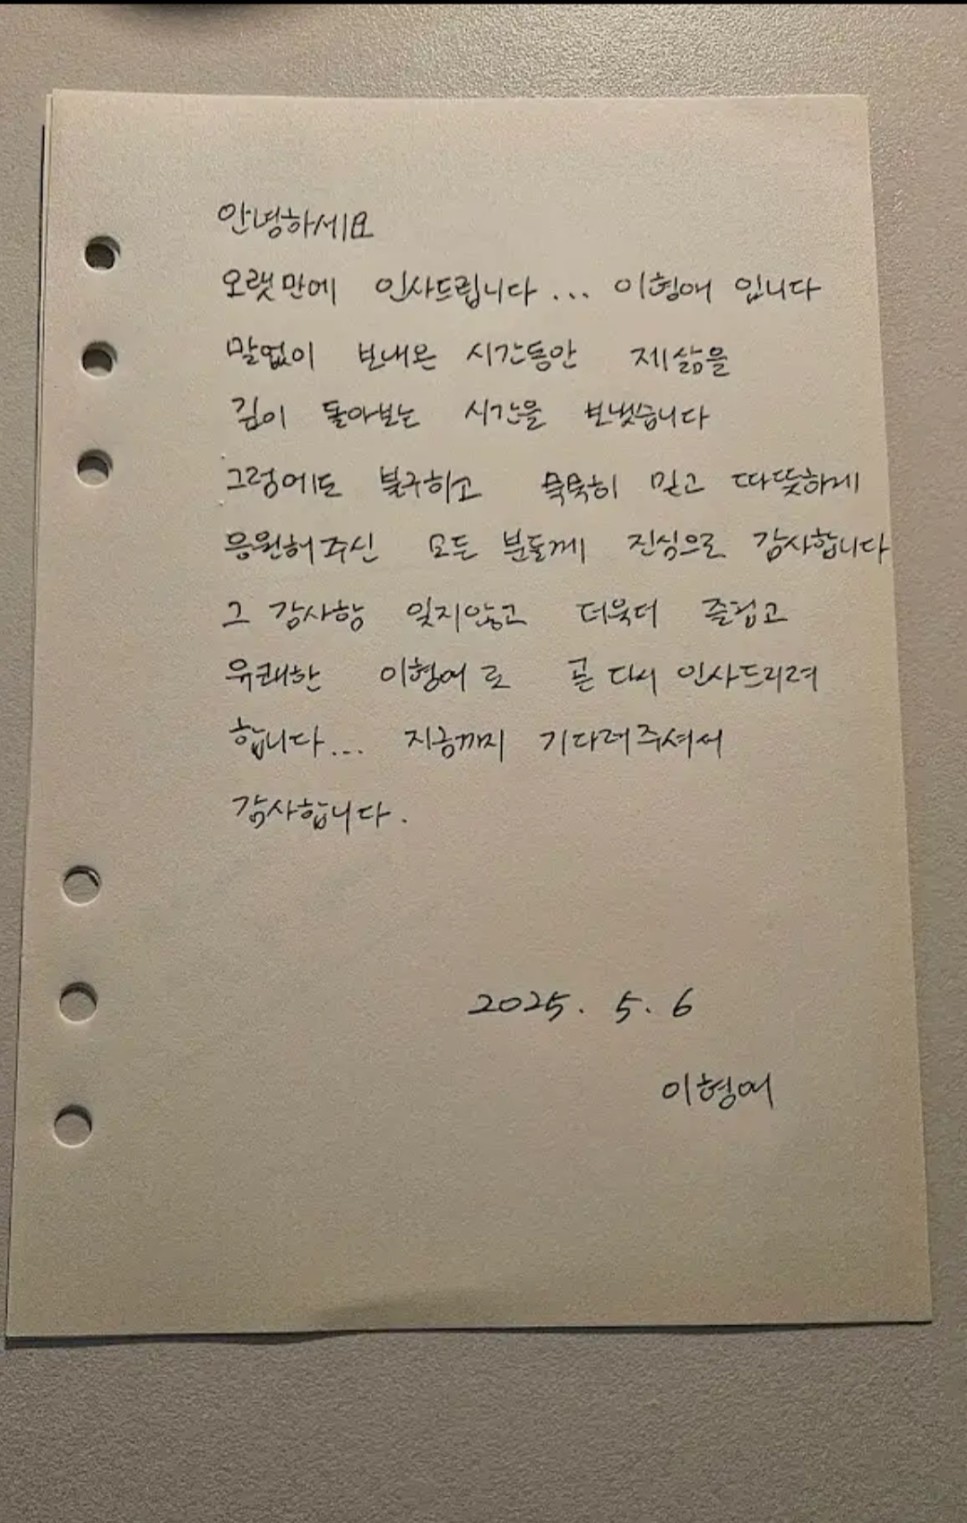 안녕하세요
오랫만에 인사드립니다... 이형애 입니다
말없이 보내온 시간동안 제삶을
깊이 돌아보는 시간을 보냈습니다
그럼에도 불구하고 묵묵히 믿고 따뜻하게
응원해주신 모든 분들께 진심으로 감사합니다
그 감사함 잊지않고 더욱더 즐겁고
유쾌한 이형애로 곧 다시 인사드리려
합니다... 지금까지 기다려주셔서
감사합니다.
2025. 5. 6
이형애